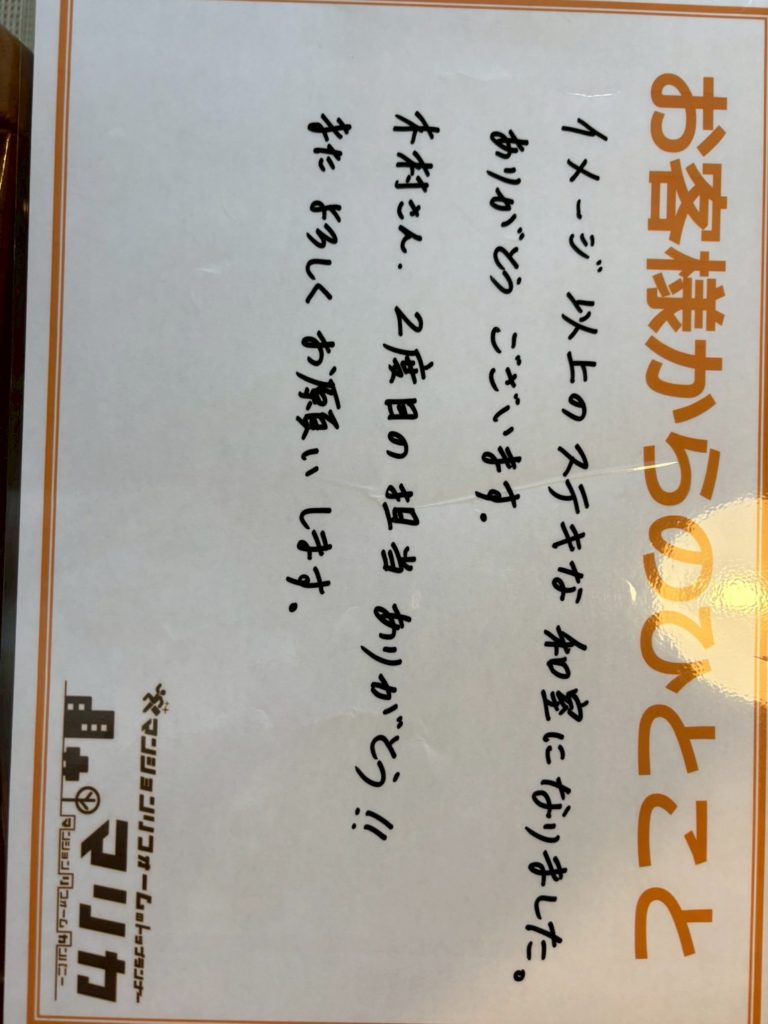 お客様からのひとこと
イメージ以上のステキな和室になりました。
ありがとうございます。
木村さん、2度目の担当ありがとう!!
またよろしくお願いします。
マンションリフォームのトップランナー
マリカ
マンションリフォームカンパニー